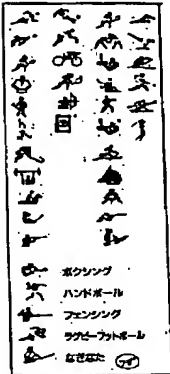 ボクシング
ハンドボール
フェンシング
ラグビーフットボール
なぎなた